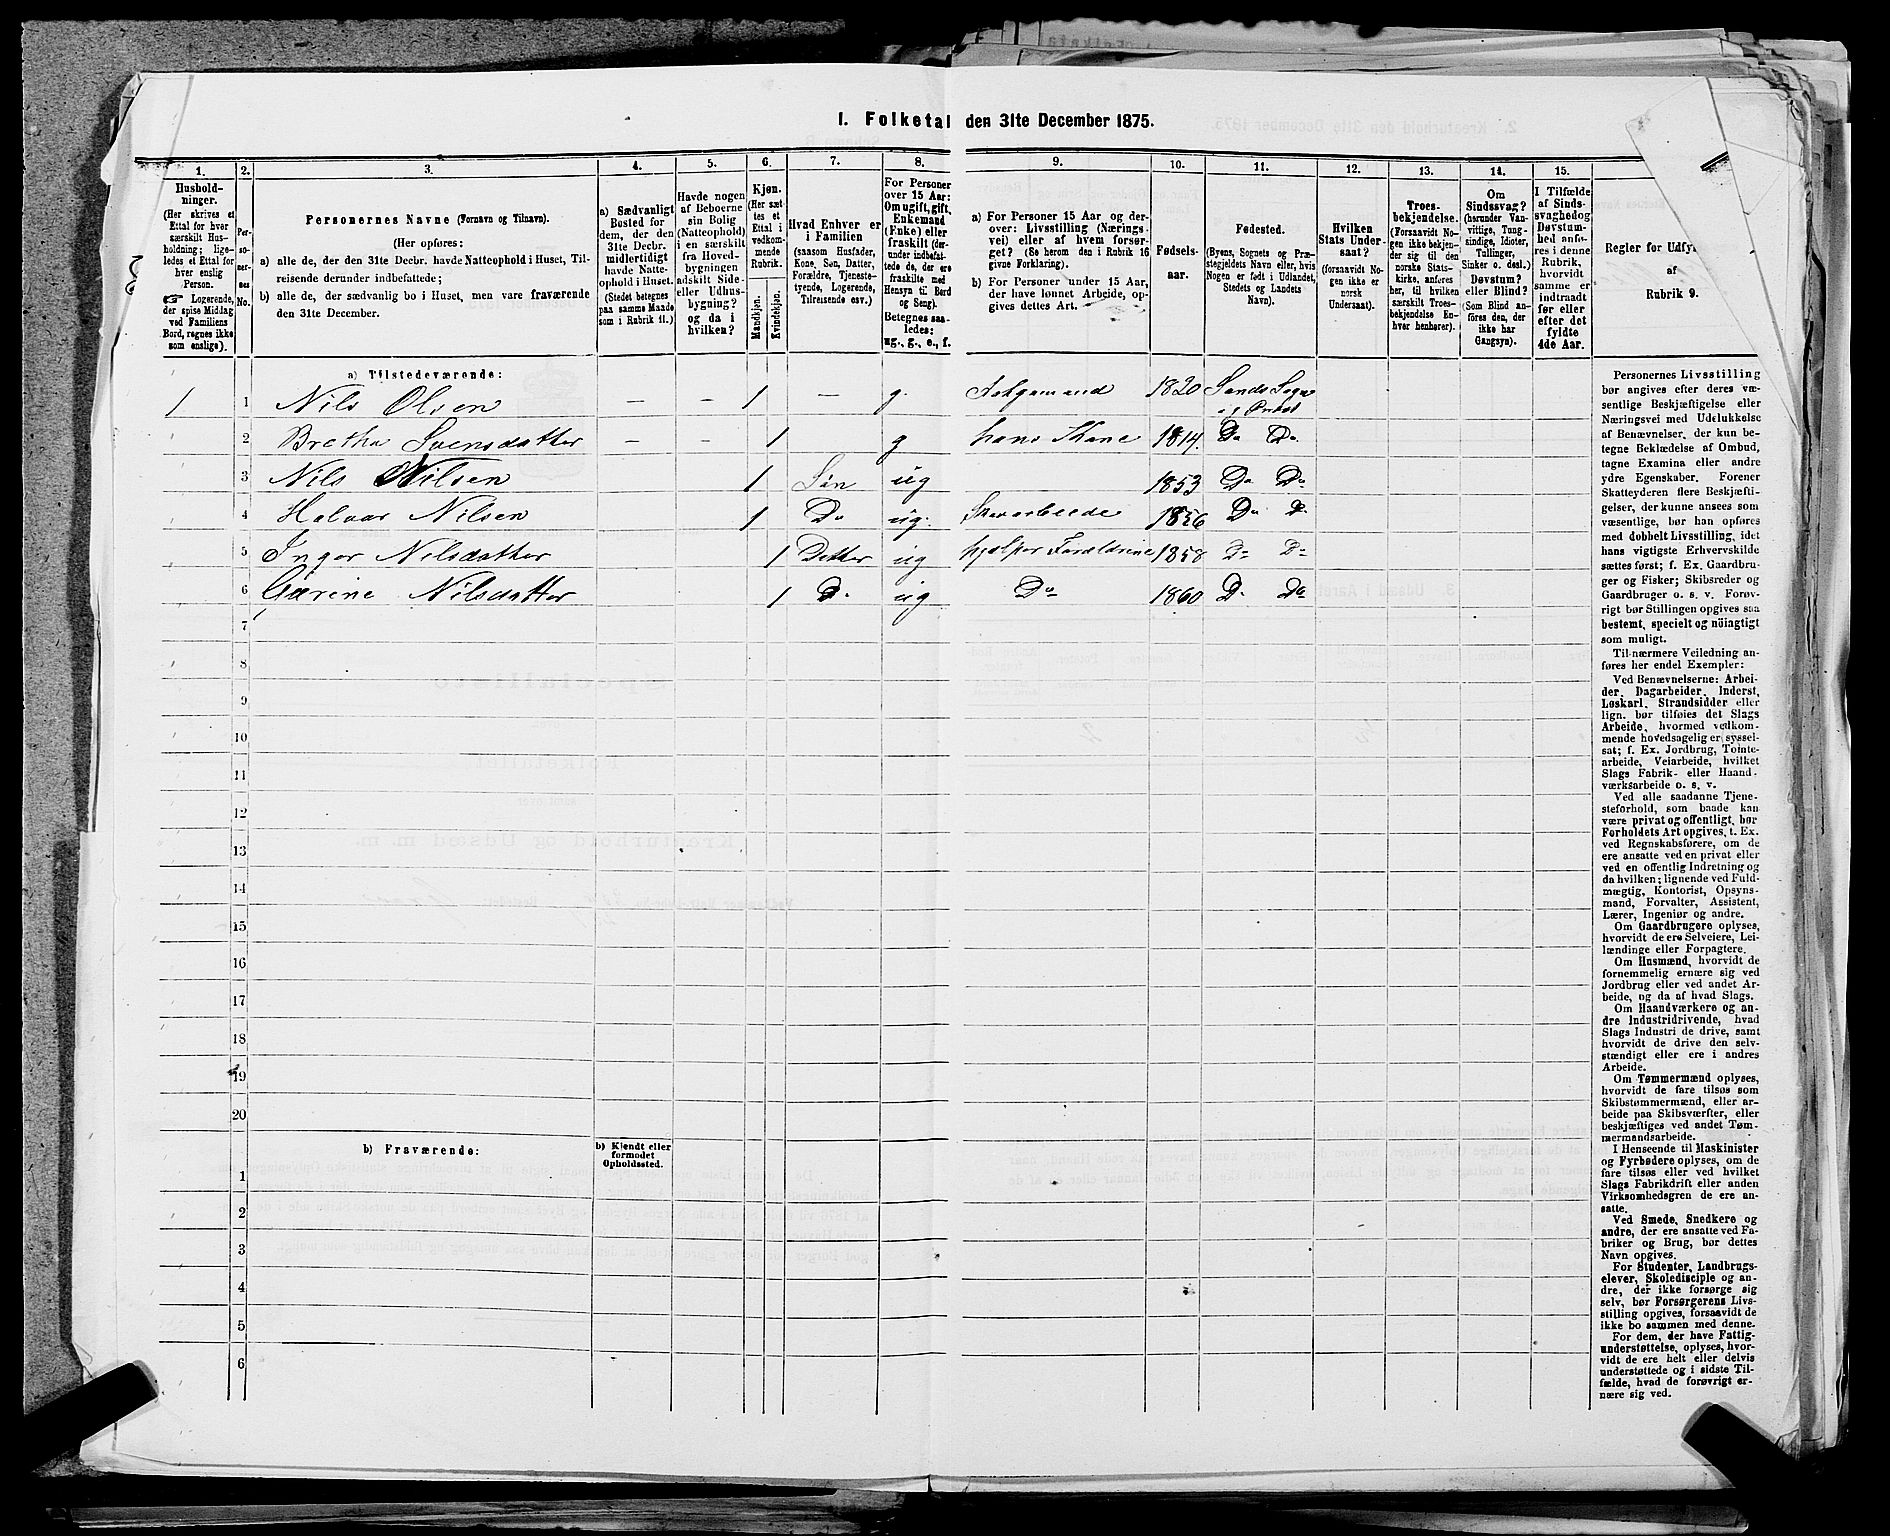 1. Folketal den 31te December 1875.
1.
Hushold-
ninger.
(Her skrives et
Ettal for hver
særskilt Hus-
holdning; lige-
ledes et Ettal for
hver enslig
Person.
Logerende,
der spise Middag
ved Familiens
Bord, regnes ikke
som enslige).
2.
Per-
soner-
nes
No.
3.
Personernes Navne (Fornavn og Tilnavn).
(Her opføres:
a) alle de, der den 31te Decbr. havde Natteophold i Huset, Til-
reisende derunder indbefattede;
b) alle de, der sædvanlig bo i Huset, men vare fraværende
den 31te December.
4.
a) Sædvanligt
Bosted for
dem, der den
31te Decbr.
midlertidigt
havde Natte-
ophold i Huset.
(Stedet betegnes
paa samme Maade
som i Rubrik 11.)
5.
Havde nogen
af Beboerne
sin Bolig
(Natteophold)
i en særskilt
fra Hoved-
bygningen
adskilt Side-
eller Udhus-
bygning?
og da i
hvilken?
6.
Kjøn.
(Her sæt-
tes et
Ettal i
vedkom-
mende
Rubrik.
Mandkjøn.
Kvindekjøn.
7.
Hvad Enhver er
i Familien
(saasom Husfader,
Kone, Søn, Datter,
Forældre, Tjeneste-
tyende, Logerende,
Tilreisende osv.)
8.
For Personer
over 15 Aar:
Om ugift, gift,
Enkemand
(Enke) eller
fraskilt (der-
under indbefat-
tede de, der ere
fraskilte med
Hensyn til Bord
og Seng).
Betegnes saa-
ledes:
ug., g., e., f.
9.
a) For Personer 15 Aar og der-
over: Livsstilling (Nærings-
vei) eller af hvem forsør-
get? (Se herom den i Rubrik 16
givne Forklaring).
b) For Personer under 15 Aar,
der have lønnet Arbeide, op-
gives dettes Art.
10.
Fødsels-
aar.
11.
Fødested.
(Byens, Sognets og Præ-
stegjeldets Navn eller, hvis
Nogen er født i Udlandet,
Stedets og Landets
Navn).
12.
Hvilken
Stats Under-
saat?
(forsaavidt No-
gen ikke er
norsk
Undersaat).
13.
Troes-
bekjendelse.
(Forsaavidt No-
gen ikke bekjen-
der sig til den
norske Stats-
kirke, anføres
her, til hvilken
særskilt Troes-
bekjendelse En-
hver henhører).
14.
Om
Sindssvag?
(herunder Van-
vittige, Tung-
sindige, Idioter,
Tullinger,
Sinker o. desl.)
Døvstum?
eller Blind?
(Som Blind an-
føres den, der
ikke har
Gangsyn).
15.
I Tilfælde
af Sinds-
svaghed og
Døvstum-
hed anfø-
res i denne
Rubrik,
hvorvidt
samme er
indtraadt
før eller
efter det
fyldte
4de Aar.
Regler for Udfyl
af
Rubrik 9.
a) Tilstedeværende:
1 1 Nils Olsen — — 1 — g. 1820 Sands Sogn
og Præst
2 Bretha Svensdatter — — 1 g hans Kone 1814 Do Do
3 Nils Nilsen 1 Søn ug 1853 Do Do
4 Halvar Nilsen 1 Do ug. 1856 Do Do
5 Inger Nilsdatter 1 Datter ug hjælper Forældrene 1858 Do Do
6 Gærine Nilsdatter 1 Do ug Do 1860 Do Do
7
8
9
10
11
12
13
14
15
16
17
18
19
20
b) Fraværende:
b) Kjendt eller
formodet
Opholdssted.
1
2
3
4
5
6
Personernes Livsstilling
bør angives efter deres væ-
sentlige Beskjæftigelse eller
Næringsvei med Udelukkelse
af Benævnelser, der kun be-
tegne Beklædelse af Ombud,
tagne Examina eller andre
ydre Egenskaber. Forener
Skatteyderen flere Beskjæfti-
gelser, der kunne ansees som
væsentlige, bør han opføres
med dobbelt Livsstilling, idet
hans vigtigste Erhvervskilde
sættes først; f. Ex. Gaardbru-
ger og Fisker; Skibsreder og
Gaardbruger o. s. v. Forøv-
rigt bør Stillingen opgives saa
bestemt, specielt og nøiagtigt
som muligt.
Til nærmere Veiledning an-
føres her endel Exempler:
Ved Benævnelserne: Arbei-
der, Dagarbeider, Inderst,
Løskarl, Strandsidder eller
lign. bør tilføies det Slags
Arbeide, hvormed vedkom-
mende hovedsagelig er syssel-
sat; f. Ex. Jordbrug, Tomte-
arbeide, Veiarbeide, hvilket
Slags Fabrik- eller Haand-
værksarbeide o. s. v.
Ved alle saadanne Tjene-
steforhold, som baade kan
være privat og offentligt, bør
Forholdets Art opgives, t. Ex.
ved Regnskabsførere, om de
ere ansatte ved en privat eller
ved en offentlig Indretning og
da hvilken; lignende ved Fuld-
mægtig, Kontorist, Opsyns-
mand, Forvalter, Assistent,
Lærer, Ingeniør og andre.
Om Gaardbrugere oplyses,
hvorvidt de ere Selveiere, Lei-
lændinge eller Forpagtere.
Om Husmænd, hvorvidt de
fornemmelig ernære sig ved
Jordbrug eller ved andet Ar-
beide, og da af hvad Slags.
Om Haandværkere og an-
dre Industridrivende, hvad
Slags Industri de drive, samt
hvorvidt de drive den selv-
stændigt eller ere i andres
Arbeide.
Om Tømmermænd oplyses,
hvorvidt de fare tilsøs som
Skibstømmermænd, eller ar-
beide paa Skibsværfter, eller
beskjæftiges ved andet Tøm-
mermandsarbeide.
I Henseende til Maskinister
og Fyrbødere oplyses, om de
fare tilsøs eller ved hvilket
Slags Fabrikdrift eller anden
Virksomhedsgren de ere an-
satte.
Ved Smede, Snedkere og
andre, der ere ansatte ved Fa-
briker og Brug, bør dettes
Navn opgives.
For Studenter, Landbrugs-
elever, Skoledisciple og an-
dre, der ikke forsørge sig
selv, bør Forsørgerens Livs-
stilling opgives, forsaavidt de
ikke bo sammen med denne.
For dem, der have Fattig-
understøttelse, oplyses, hvor-
vidt de ere helt eller delvis
understøttede og i sidste Til-
fælde, hvad de forøvrigt er-
nære sig ved.